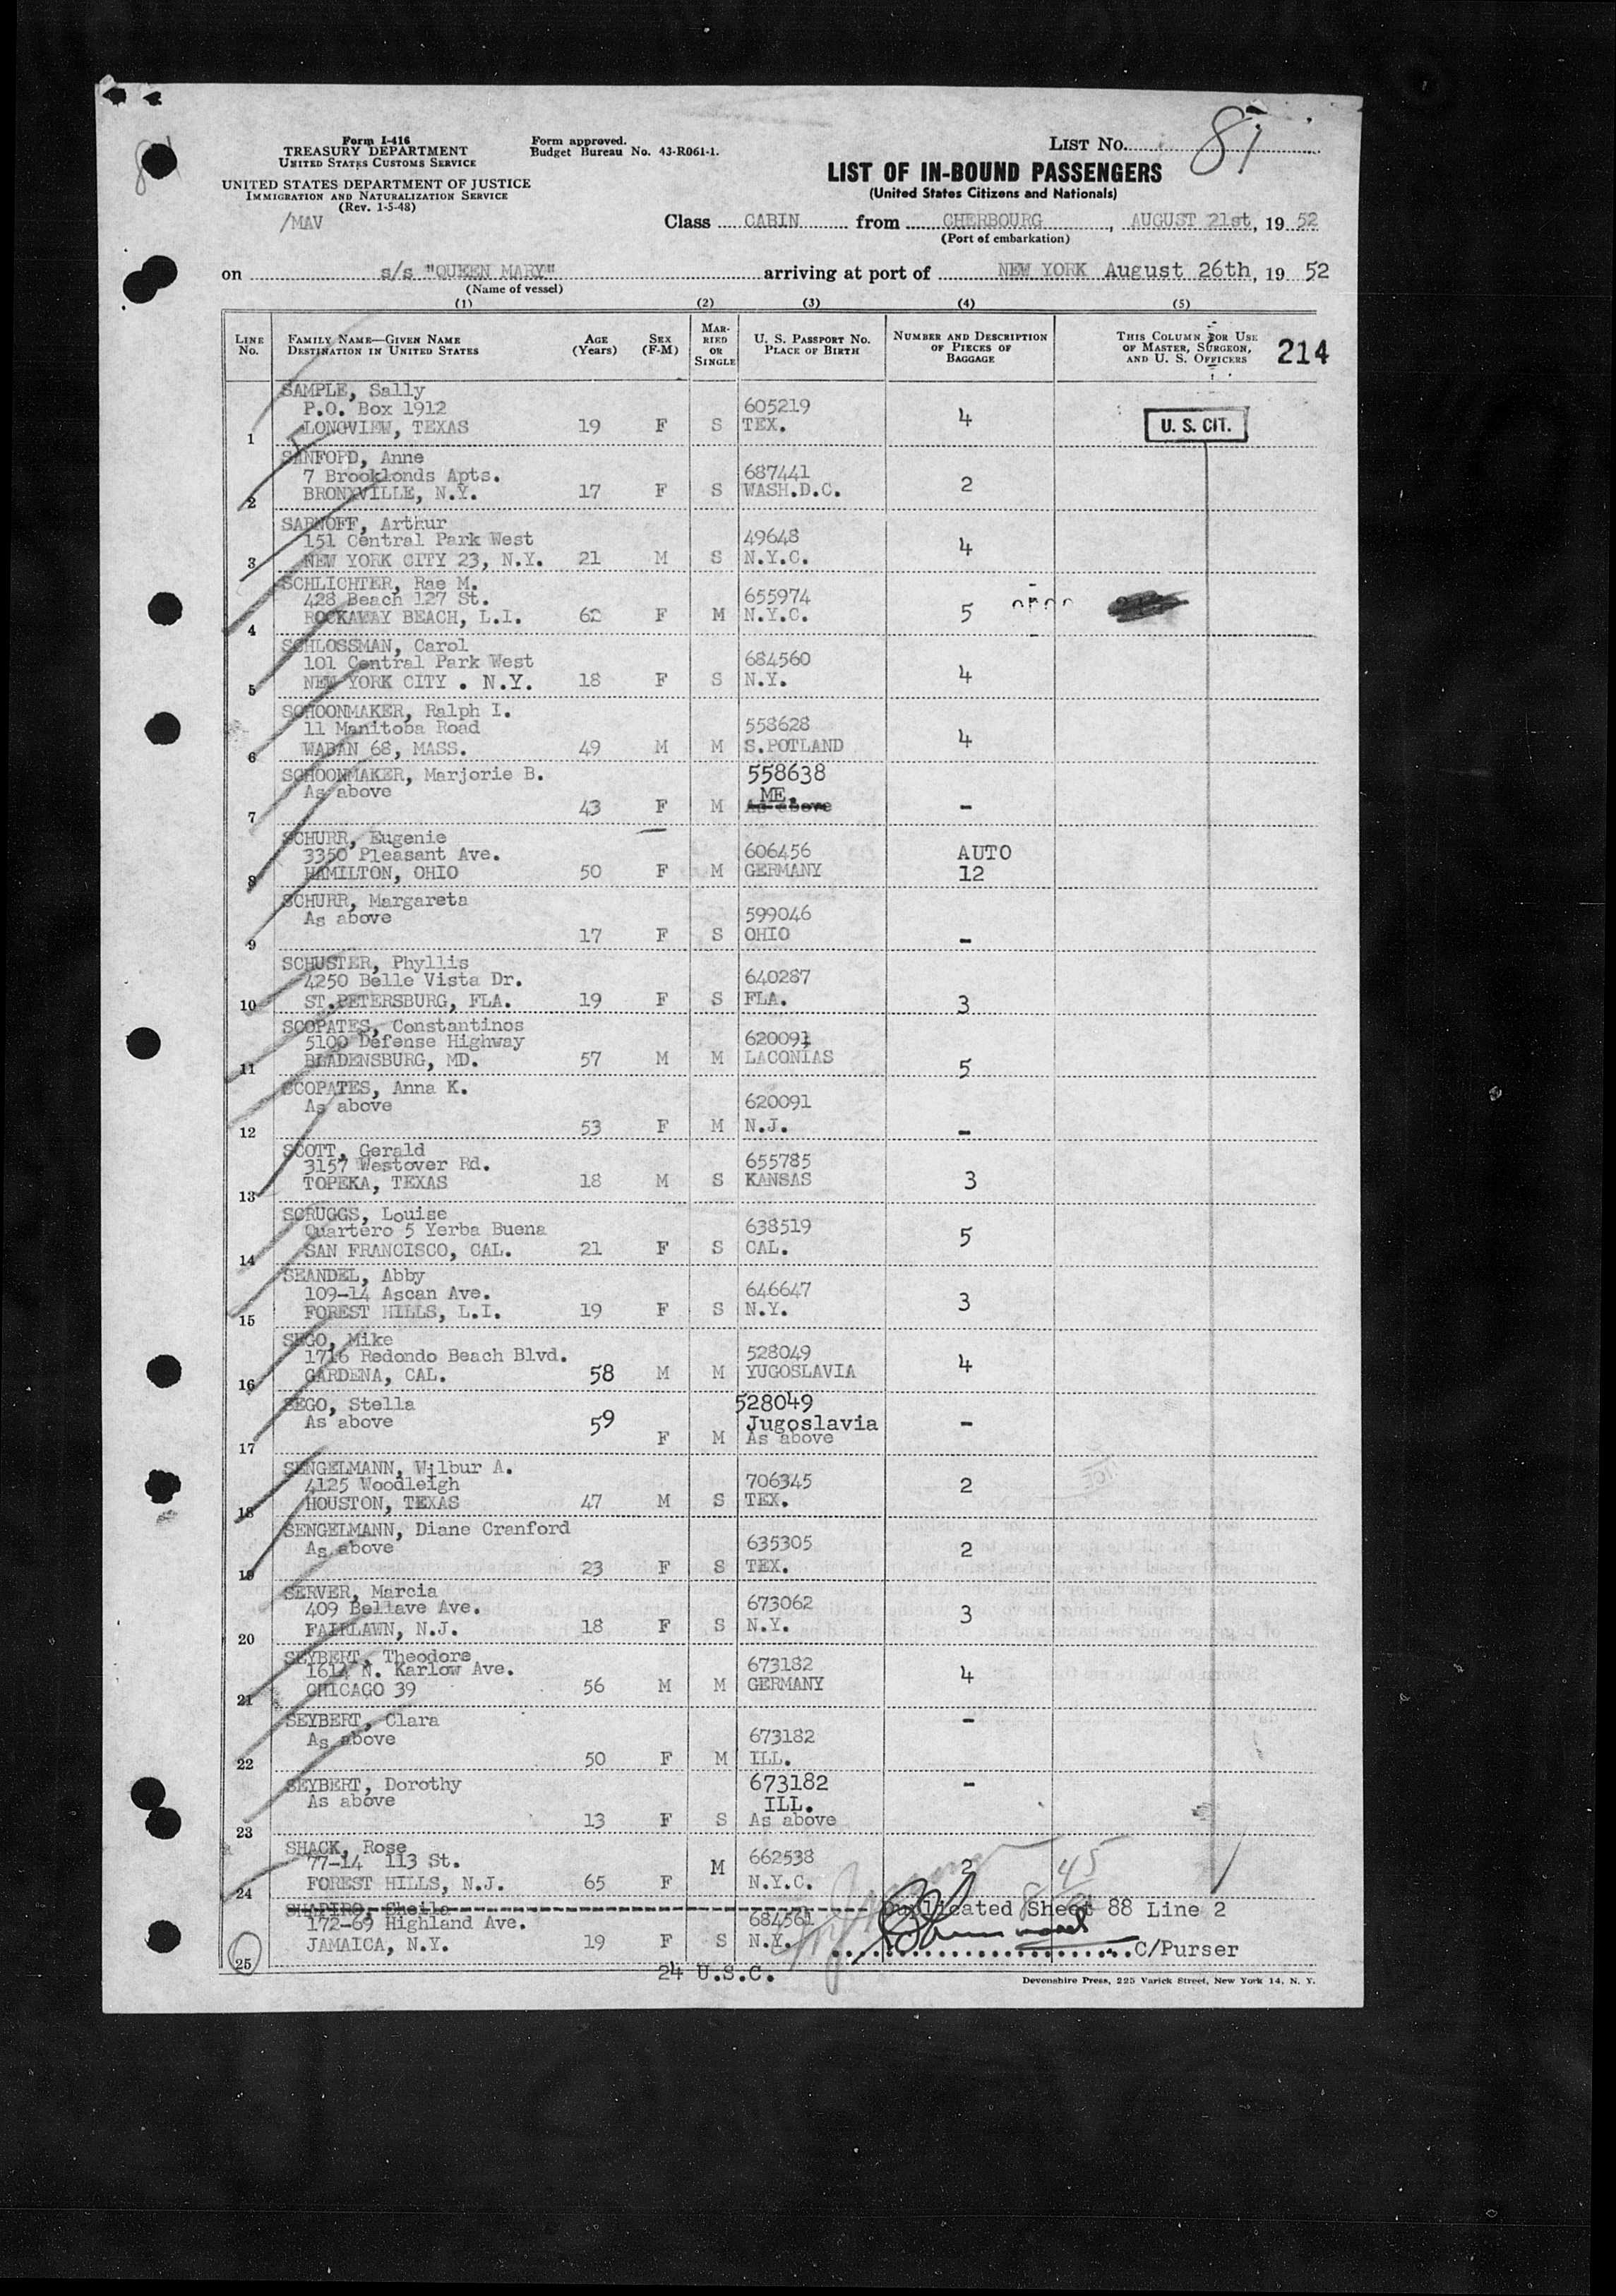 Form I-416
TREASURY DEPARTMENT
UNITED STATES CUSTOMS SERVICE
UNITED STATES DEPARTMENT OF JUSTICE
IMMIGRATION AND NATURALIZATION SERVICE
(Rev. 1-5-48)
/MAV
Form approved.
Budget Bureau No. 43-R061-1.
LIST NO. 81
LIST OF IN-BOUND PASSENGERS
(United States Citizens and Nationals)
Class CABIN from CHERBOURG, AUGUST 21st, 19 52
(Port of embarkation)
on s/s "QUEEN MARY" arriving at port of NEW YORK August 26th, 19 52
(Name of vessel)
(1) (2) (3) (4) (5)
LINE NO. FAMILY NAME—GIVEN NAME DESTINATION IN UNITED STATES AGE (Years) SEX (F-M) MARRIED OR SINGLE U. S. PASSPORT NO. PLACE OF BIRTH NUMBER AND DESCRIPTION OF PIECES OF BAGGAGE THIS COLUMN FOR USE OF MASTER, SURGEON, AND U. S. OFFICERS 214
SAMPLE, Sally
P.O. Box 1912 605219
1 LONGVIEW, TEXAS 19 F S TEX. 4 U. S. CIT.
SANFORD, Anne
7 Brooklonds Apts. 687441
2 BRONXVILLE, N.Y. 17 F S WASH.D.C. 2
SARNOFF, Arthur
151 Central Park West 49648
3 NEW YORK CITY 23, N.Y. 21 M S N.Y.C. 4
SCHLICHTER, Rae M.
428 Beach 127 St. 655974
4 ROCKAWAY BEACH, L.I. 62 F M N.Y.C. 5
SCHLOSSMAN, Carol
101 Central Park West 684560
5 NEW YORK CITY . N.Y. 18 F S N.Y. 4
SCHOONMAKER, Ralph I.
11 Manitoba Road 558628
6 WABAN 68, MASS. 49 M M S.POTLAND 4
SCHOONMAKER, Marjorie B. 558638
As above ME.
7 43 F M As above -
SCHURR, Eugenie
3350 Pleasant Ave. 606456 AUTO
8 HAMILTON, OHIO 50 F M GERMANY 12
SCHURR, Margareta
As above 599046
9 17 F S OHIO -
SCHUSTER, Phyllis
4250 Belle Vista Dr. 640287
10 ST.PETERSBURG, FLA. 19 F S FLA. 3
SCOPATES, Constantinos
5100 Defense Highway 620091
11 BLADENSBURG, MD. 57 M M LACONIAS 5
SCOPATES, Anna K.
As above 620091
12 53 F M N.J. -
SCOTT, Gerald
3157 Westover Rd. 655785
13 TOPEKA, TEXAS 18 M S KANSAS 3
SCRUGGS, Louise
Quartero 5 Yerba Buena 638519
14 SAN FRANCISCO, CAL. 21 F S CAL. 5
SEANDEL, Abby
109-14 Ascan Ave. 646647
15 FOREST HILLS, L.I. 19 F S N.Y. 3
SEGO, Mike
1716 Redondo Beach Blvd. 528049
16 GARDENA, CAL. 58 M M YUGOSLAVIA 4
SEGO, Stella 528049
As above 59 Jugoslavia
17 F M As above -
SENGELMANN, Wilbur A.
4125 Woodleigh 706345
18 HOUSTON, TEXAS 47 M S TEX. 2
SENGELMANN, Diane Cranford
As above 635305
19 23 F S TEX. 2
SERVER, Marcia
409 Bellave Ave. 673062
20 FAIRLAWN, N.J. 18 F S N.Y. 3
SEYBERT, Theodore
1614 N. Karlow Ave. 673182
21 CHICAGO 39 56 M M GERMANY 4
SEYBERT, Clara
As above 673182
22 50 F M ILL. -
SEYBERT, Dorothy 673182
As above ILL.
23 13 F S As above -
SHACK, Rose
77-14 113 St. 662538
24 FOREST HILLS, N.J. 65 F M N.Y.C. 2
SHAPIRO, Sheila Duplicated Sheet 88 Line 2
172-69 Highland Ave. 684561
25 JAMAICA, N.Y. 19 F S N.Y. C/Purser
24 U.S.C.
Devonshire Press, 225 Varick Street, New York 14, N. Y.